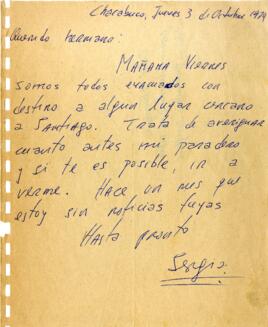 Chacabuco, Jueves 3 de Octubre 1974
Querido hermano:
Mañana Viernes
somos todos evacuados con
destino a algun lugar cercano
a Santiago. Trata de averiguar
cuanto antes mi paradero
y si te es posible, ir a
verme. Hace un mes que
estoy sin noticias tuyas
Hasta pronto
Sergio.